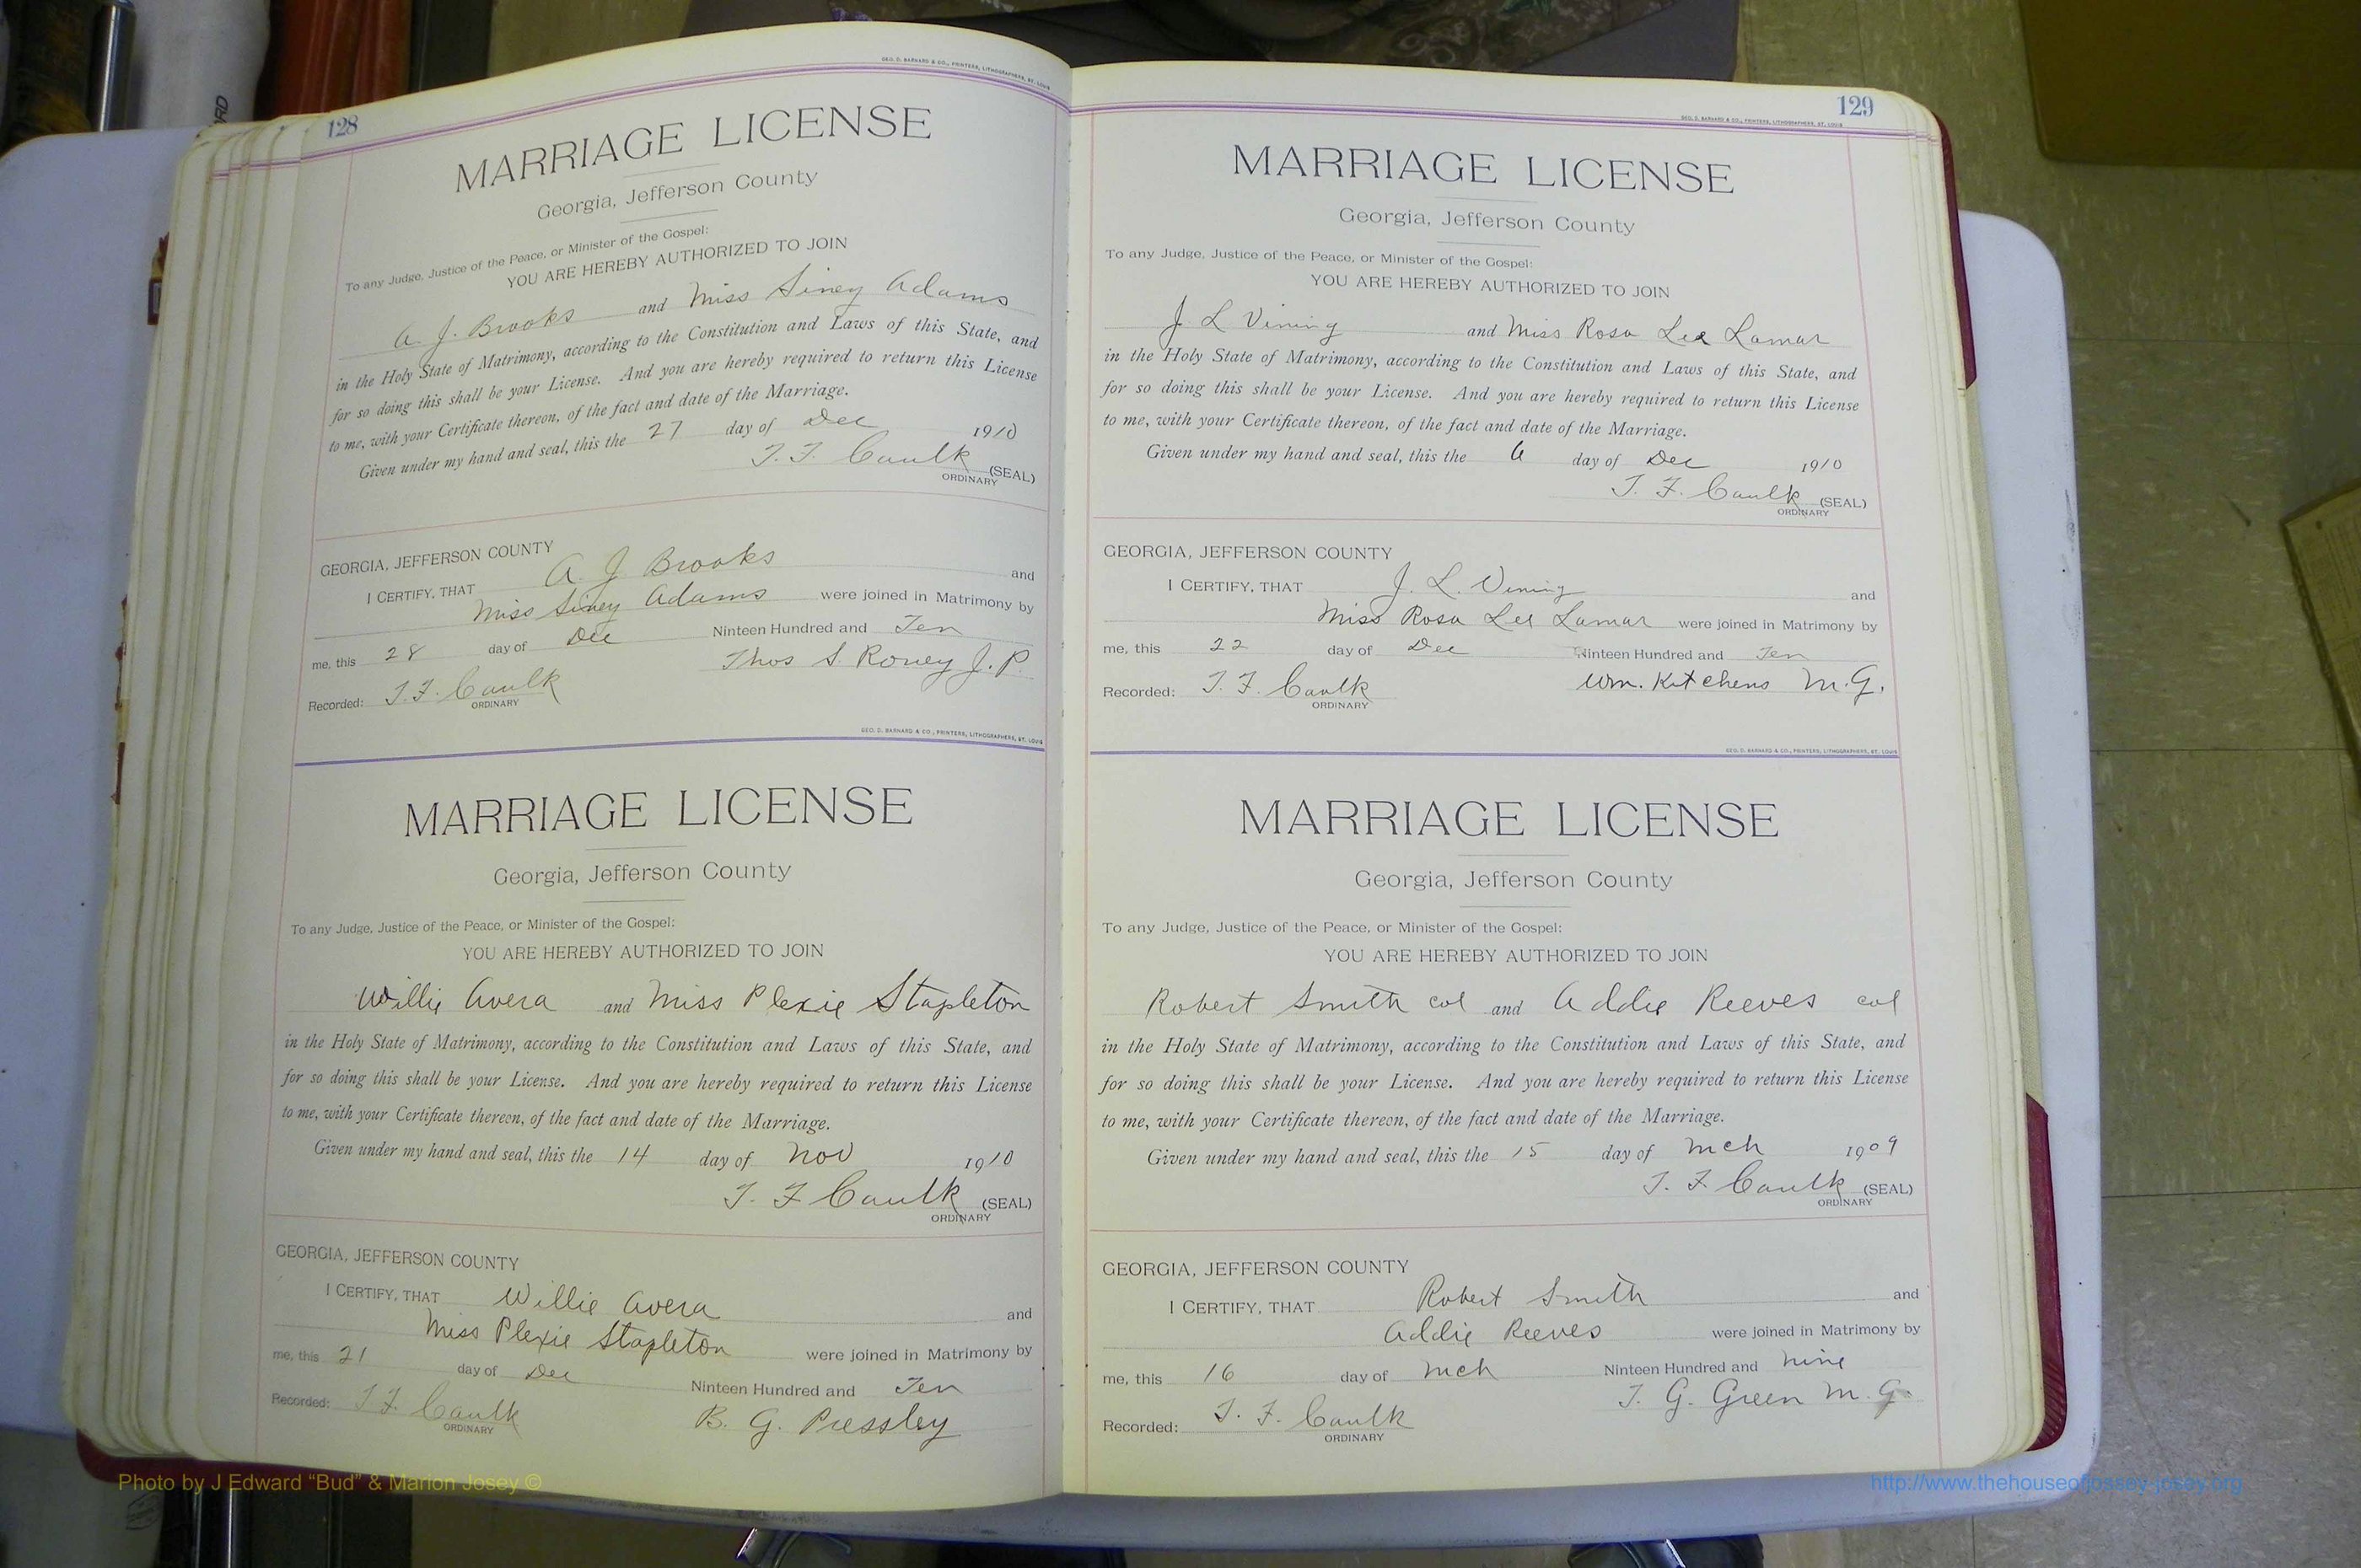 128
GEO. D. BARNARD & CO., PRINTERS, LITHOGRAPHERS, ST. LOUIS
MARRIAGE LICENSE
Georgia, Jefferson County
To any Judge, Justice of the Peace, or Minister of the Gospel:
YOU ARE HEREBY AUTHORIZED TO JOIN
A. J. Brooks and Miss Siney Adams
in the Holy State of Matrimony, according to the Constitution and Laws of this State, and
for so doing this shall be your License. And you are hereby required to return this License
to me, with your Certificate thereon, of the fact and date of the Marriage.
Given under my hand and seal, this the 27 day of Dec 1910
T. F. Caulk (SEAL)
ORDINARY
GEORGIA, JEFFERSON COUNTY
I CERTIFY, THAT A. J Brooks and
Miss Siney Adams were joined in Matrimony by
me, this 28 day of Dec Ninteen Hundred and Ten
Thos S. Roney J. P.
Recorded: T. F. Caulk
ORDINARY
GEO. D. BARNARD & CO., PRINTERS, LITHOGRAPHERS, ST. LOUIS
MARRIAGE LICENSE
Georgia, Jefferson County
To any Judge, Justice of the Peace, or Minister of the Gospel:
YOU ARE HEREBY AUTHORIZED TO JOIN
Willie Avera and Miss Plexie Stapleton
in the Holy State of Matrimony, according to the Constitution and Laws of this State, and
for so doing this shall be your License. And you are hereby required to return this License
to me, with your Certificate thereon, of the fact and date of the Marriage.
Given under my hand and seal, this the 14 day of Nov 1910
T. F Caulk (SEAL)
ORDINARY
GEORGIA, JEFFERSON COUNTY
I CERTIFY, THAT Willie Avera and
Miss Plexie Stapleton were joined in Matrimony by
me, this 21 day of Dec Ninteen Hundred and Ten
B. G. Pressley
Recorded: T. F. Caulk
ORDINARY
129
GEO. D. BARNARD & CO., PRINTERS, LITHOGRAPHERS, ST. LOUIS
MARRIAGE LICENSE
Georgia, Jefferson County
To any Judge, Justice of the Peace, or Minister of the Gospel:
YOU ARE HEREBY AUTHORIZED TO JOIN
J. L Vining and Miss Rosa Lee Lamar
in the Holy State of Matrimony, according to the Constitution and Laws of this State, and
for so doing this shall be your License. And you are hereby required to return this License
to me, with your Certificate thereon, of the fact and date of the Marriage.
Given under my hand and seal, this the 6 day of Dec 1910
T. F. Caulk (SEAL)
ORDINARY
GEORGIA, JEFFERSON COUNTY
I CERTIFY, THAT J. L. Vining and
Miss Rosa Lee Lamar were joined in Matrimony by
me, this 22 day of Dec Ninteen Hundred and Ten
Wm. Kitchens M. G.
Recorded: T. F. Caulk
ORDINARY
GEO. D. BARNARD & CO., PRINTERS, LITHOGRAPHERS, ST. LOUIS
MARRIAGE LICENSE
Georgia, Jefferson County
To any Judge, Justice of the Peace, or Minister of the Gospel:
YOU ARE HEREBY AUTHORIZED TO JOIN
Robert Smith col and Addie Reeves col
in the Holy State of Matrimony, according to the Constitution and Laws of this State, and
for so doing this shall be your License. And you are hereby required to return this License
to me, with your Certificate thereon, of the fact and date of the Marriage.
Given under my hand and seal, this the 15 day of Mch 1909
T. F. Caulk (SEAL)
ORDINARY
GEORGIA, JEFFERSON COUNTY
I CERTIFY, THAT Robert Smith and
Addie Reeves were joined in Matrimony by
me, this 16 day of Mch Ninteen Hundred and nine
T. G. Green M. G.
Recorded: T. F. Caulk
ORDINARY
Photo by J Edward "Bud" & Marion Josey ©
http://www.thehouseofjossey-josey.org